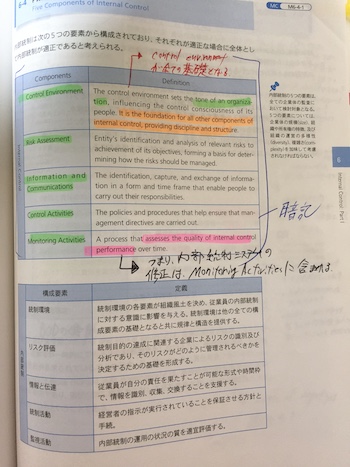 Five Components of Internal Control
MC M6-4-1
内部統制は次の5つの要素から構成されており、それぞれが適正な場合に全体とし
て内部統制が適正であると考えられる。
control environment
全ての基礎となる
Components
Definition
Control Environment
The control environment sets the tone of an organiza-
tion, influencing the control consciousness of its
people. It is the foundation for all other components of
internal control, providing discipline and structure.
Risk Assessment
Entity's identification and analysis of relevant risks to
achievement of its objectives, forming a basis for deter-
mining how the risks should be managed.
Information and
Communications
The identification, capture, and exchange of informa-
tion in a form and time frame that enable people to
carry out their responsibilities.
Control Activities
The policies and procedures that help ensure that man-
agement directives are carried out.
Monitoring Activities
A process that assesses the quality of internal control
performance over time.
暗記
つまり、内部統制システムの
修正は、Monitoring Activitiesに含まれる
構成要素
定義
内部統制
統制環境
統制環境の各要素が組織風土を決め、従業員の内部統制
に対する意識に影響を与える。統制環境は他の全ての構
成要素の基礎となると共に規律と構造を提供する。
リスク評価
統制目的の達成に関連する企業によるリスクの識別及び
分析であり、そのリスクがどのように管理されるべきかを
決定するための基礎を形成する。
情報と伝達
従業員が自分の責任を果たすことが可能な形式や時間枠
で、情報を識別、収集、交換することを支援する。
統制活動
経営者の指示が実行されていることを保証させる方針と
手続。
監視活動
内部統制の運用の状況の質を適宜評価する。
内部統制の5つの要素は、
全ての企業の監査に
おいて検討対象となる。
6
Internal Control: Part I